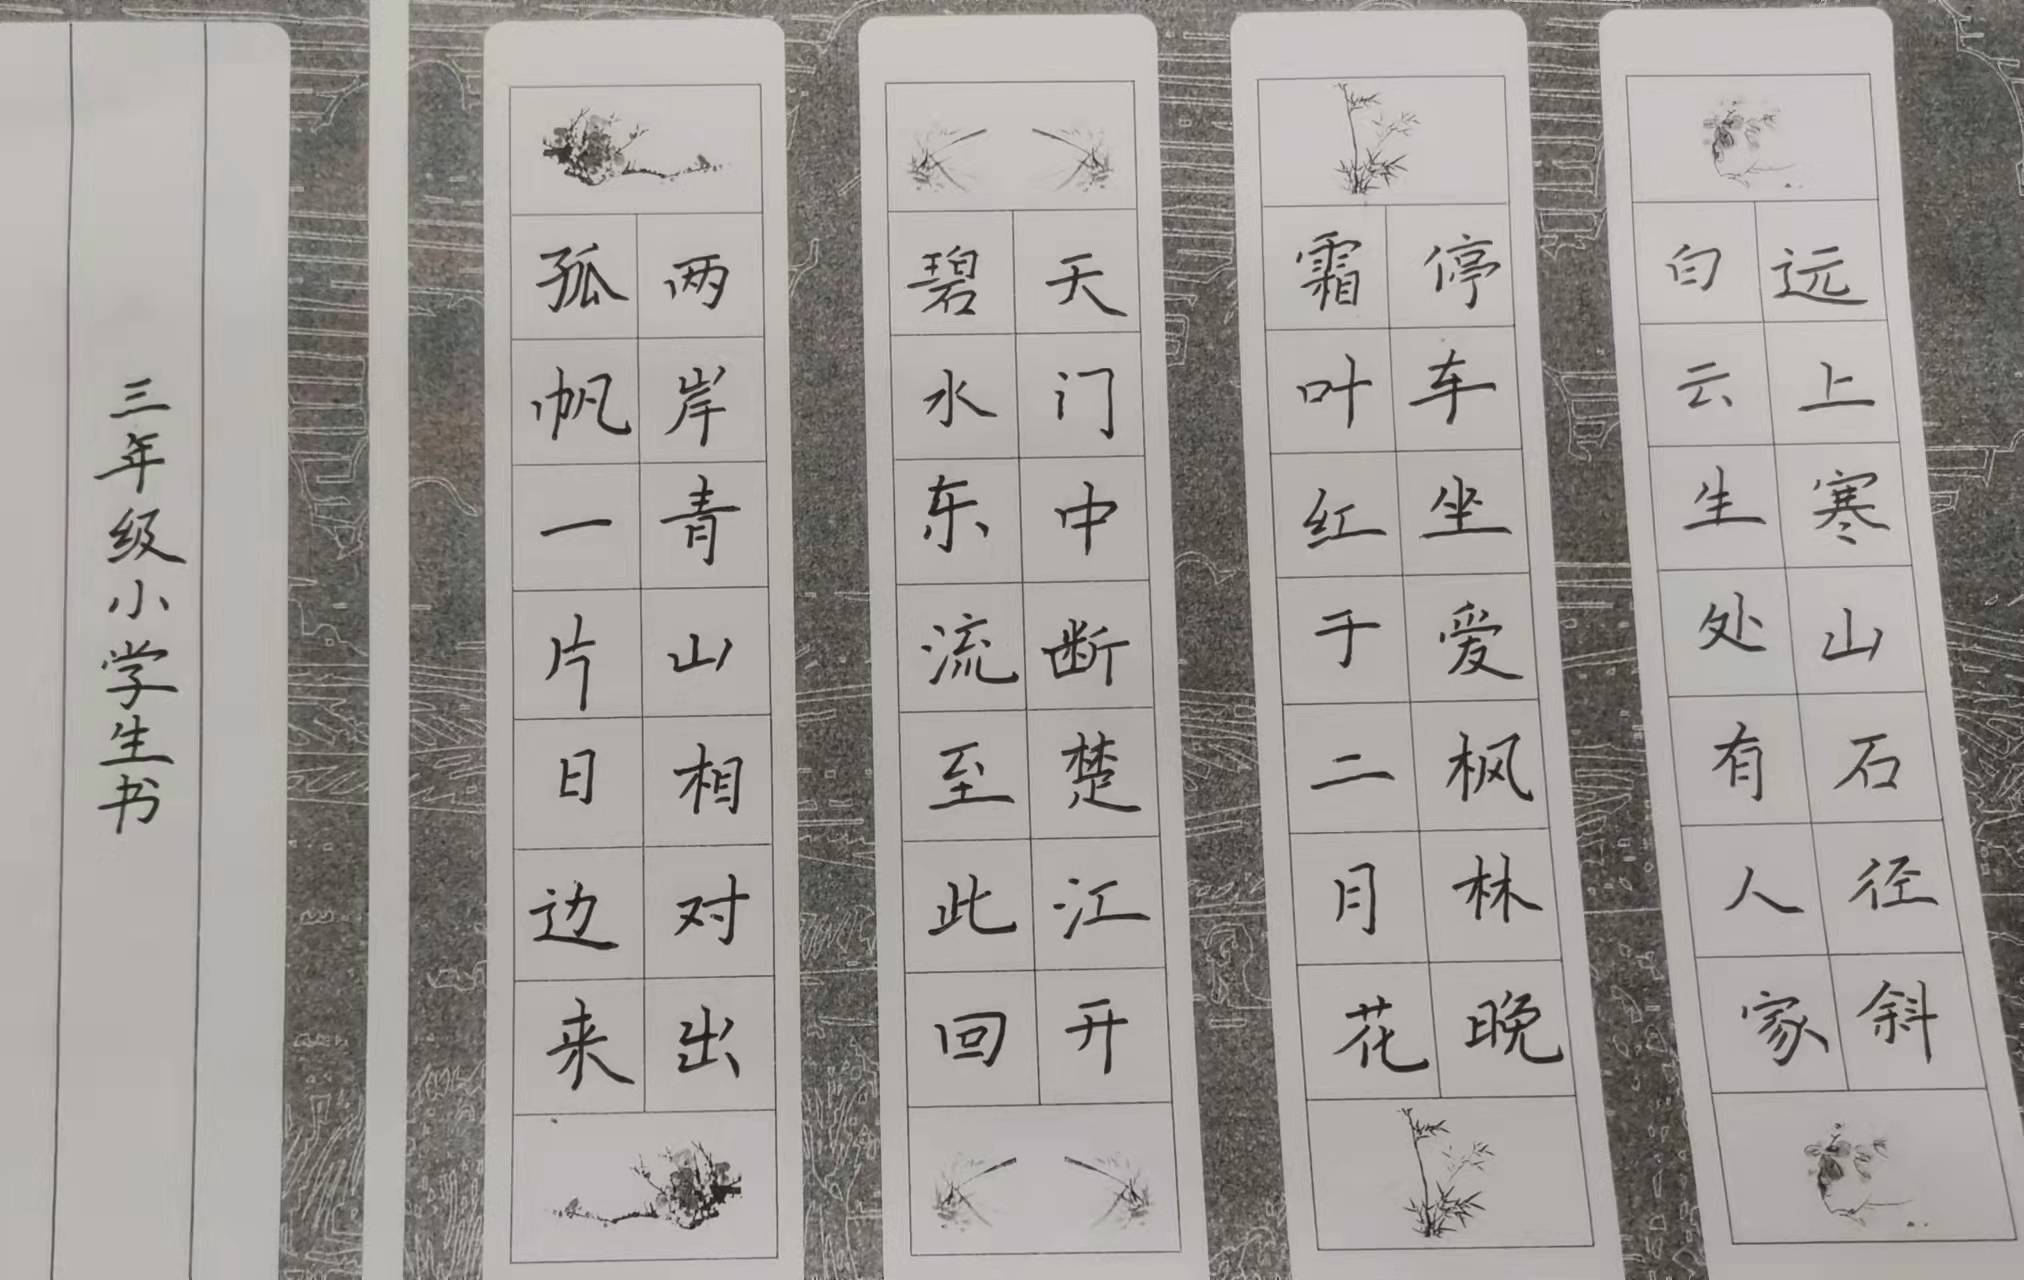 远上寒山石径斜
白云生处有人家
停车坐爱枫林晚
霜叶红于二月花
天门中断楚江开
碧水东流至此回
两岸青山相对出
孤帆一片日边来
三年级小学生书